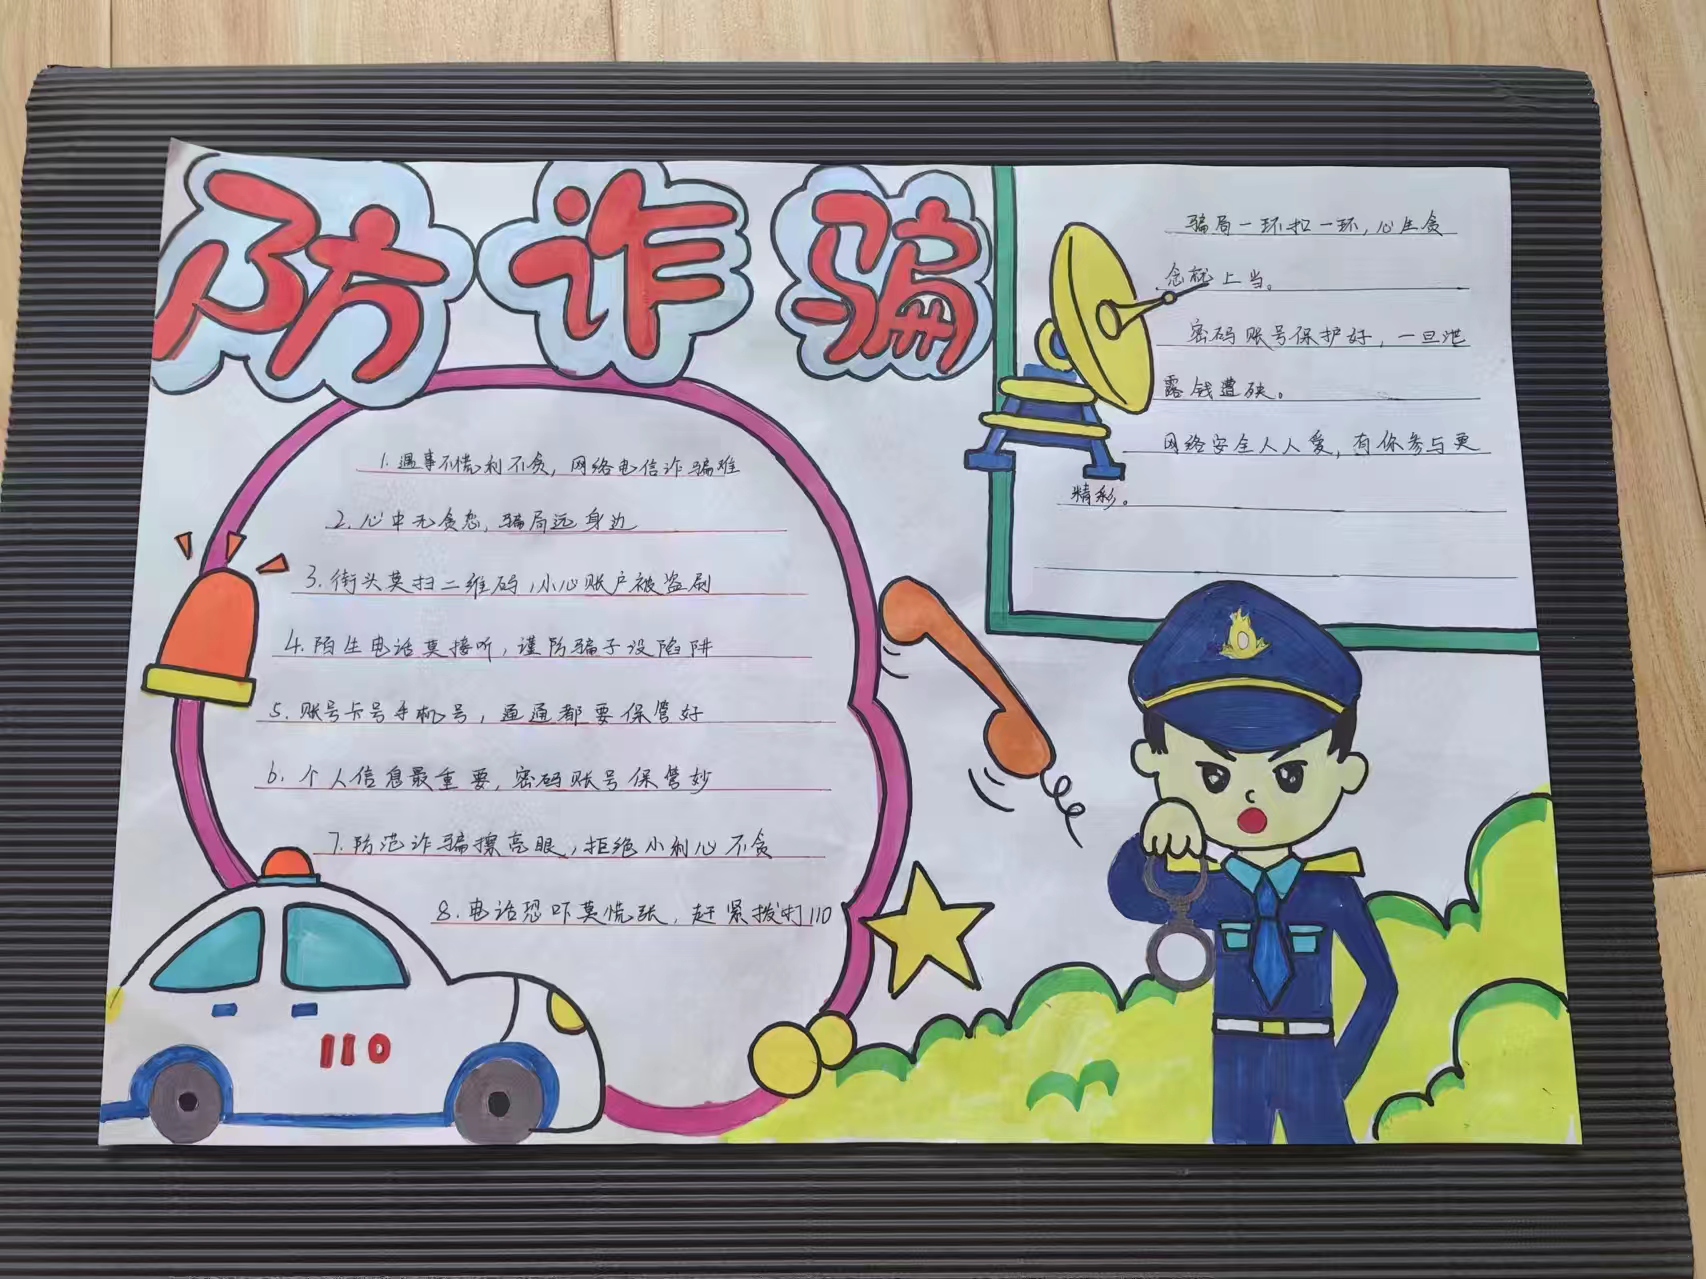 防诈骗
1. 遇事不慌利不贪,网络电信诈骗难
2. 心中无贪念,骗局远身边
3. 街头莫扫二维码,小心账户被盗刷
4. 陌生电话莫接听,谨防骗子设陷阱
5. 账号卡号手机号,通通都要保管好
6. 个人信息最重要,密码账号保管妙
7. 防范诈骗擦亮眼,拒绝小利心不贪
8. 电话恐吓莫慌张,赶紧拨打110
110
骗局一环扣一环,心生贪
念就上当。
密码账号保护好,一旦泄
露钱遭殃。
网络安全人人爱,有你参与更
精彩。